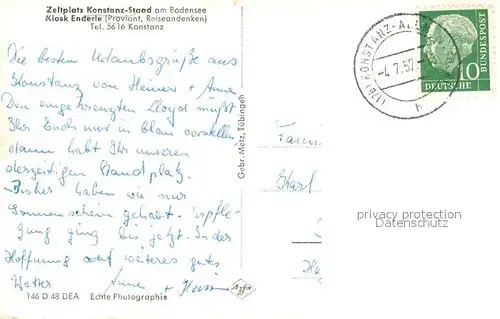 Zeltplatz Konstanz-Staad am Bodensee
Kiosk Enderle (Proviant, Reiseandenken)
Tel. 5616 Konstanz
Die besten Urlaubsgrüße aus
Konstanz von Heiner + Anne
Den angekreuzten Lloyd müßt
Ihr Euch nur in blau vorstellen,
dann habt Ihr unseren
derzeitigen Standplatz.
Bisher haben wir nur
Sonnenschein gehabt. Verpfle-
gung ging bis jetzt. In der
Hoffnung auf weiteres gutes
Wetter Anne +
146 D 48 DEA Echte Photographie
Gebr. Metz, Tübingen
Agfa
(17b) KONSTANZ
-4.7.57
b
10
DEUTSCHE
BUNDESPOST
privacy protection
Datenschutz